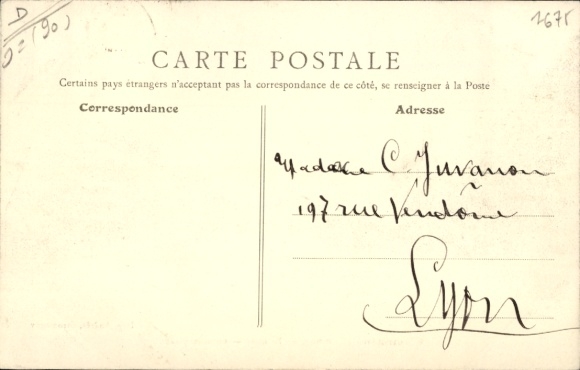 D
(90)
2675
CARTE POSTALE
Certains pays étrangers n'acceptant pas la correspondance de ce côté, se renseigner à la Poste
Correspondance
Adresse
Madame C. Juvanon
197 rue Vendôme
Lyon